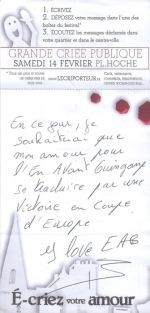 1. ÉCRIVEZ
2. DÉPOSEZ votre message dans l'une des
boîtes du festival*
3. ÉCOUTEZ les messages déclamés dans
votre quartier et dans le centre-ville
GRANDE CRIEE PUBLIQUE
SAMEDI 14 FEVRIER PL.HOCHE
www.LECRIPORTEUR
En ce jour, je
souhaiterai que
mon amour pour
l'En Avant Guingamp
se traduise par une
Victoire en Coupe
d'Europe
I love EAG
É-criez votre amour